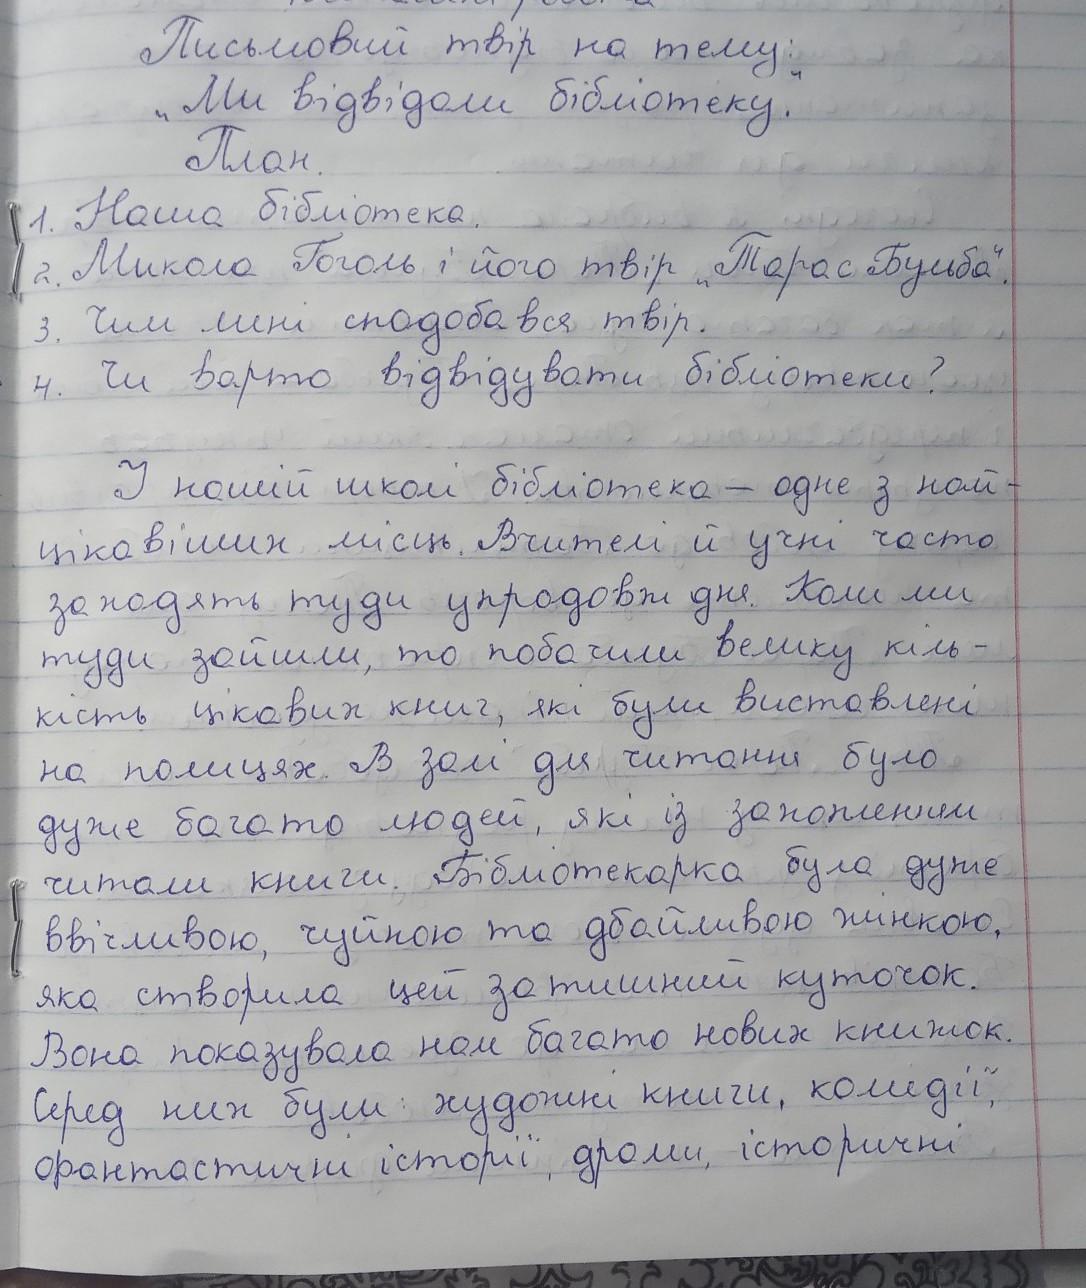 Письмовий твір на тему:
„Ми відвідали бібліотеку."
План.
1. Наша бібліотека.
2. Микола Гоголь і його твір „Тарас Бульба".
3. Чим мені сподобався твір.
4. Чи варто відвідувати бібліотеки?
У нашій школі бібліотека – одне з най-
цікавіших місць. Вчителі й учні часто
заходять туди упродовж дня. Коли ми
туди зайшли, то побачили велику кіль-
кість цікавих книг, які були виставлені
на полицях. В залі для читання було
дуже багато людей, які із захопленням
читали книги. Бібліотекарка була дуже
ввічливою, чуйною та дбайливою жінкою,
яка створила цей затишний куточок.
Вона показувала нам багато нових книжок.
Серед них були: художні книги, комедії,
фантастичні історії, драми, історичні